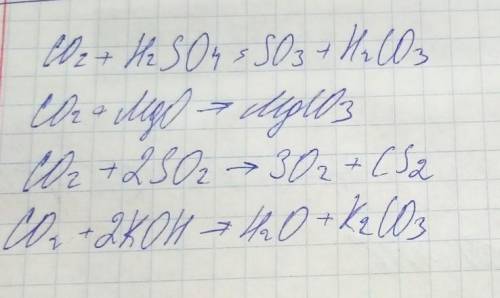 CO2 + H2SO4 = SO3 + H2CO3
CO2 + MgO → MgCO3
CO2 + 2SO2 → 3O2 + CS2
CO2 + 2KOH → H2O + K2CO3